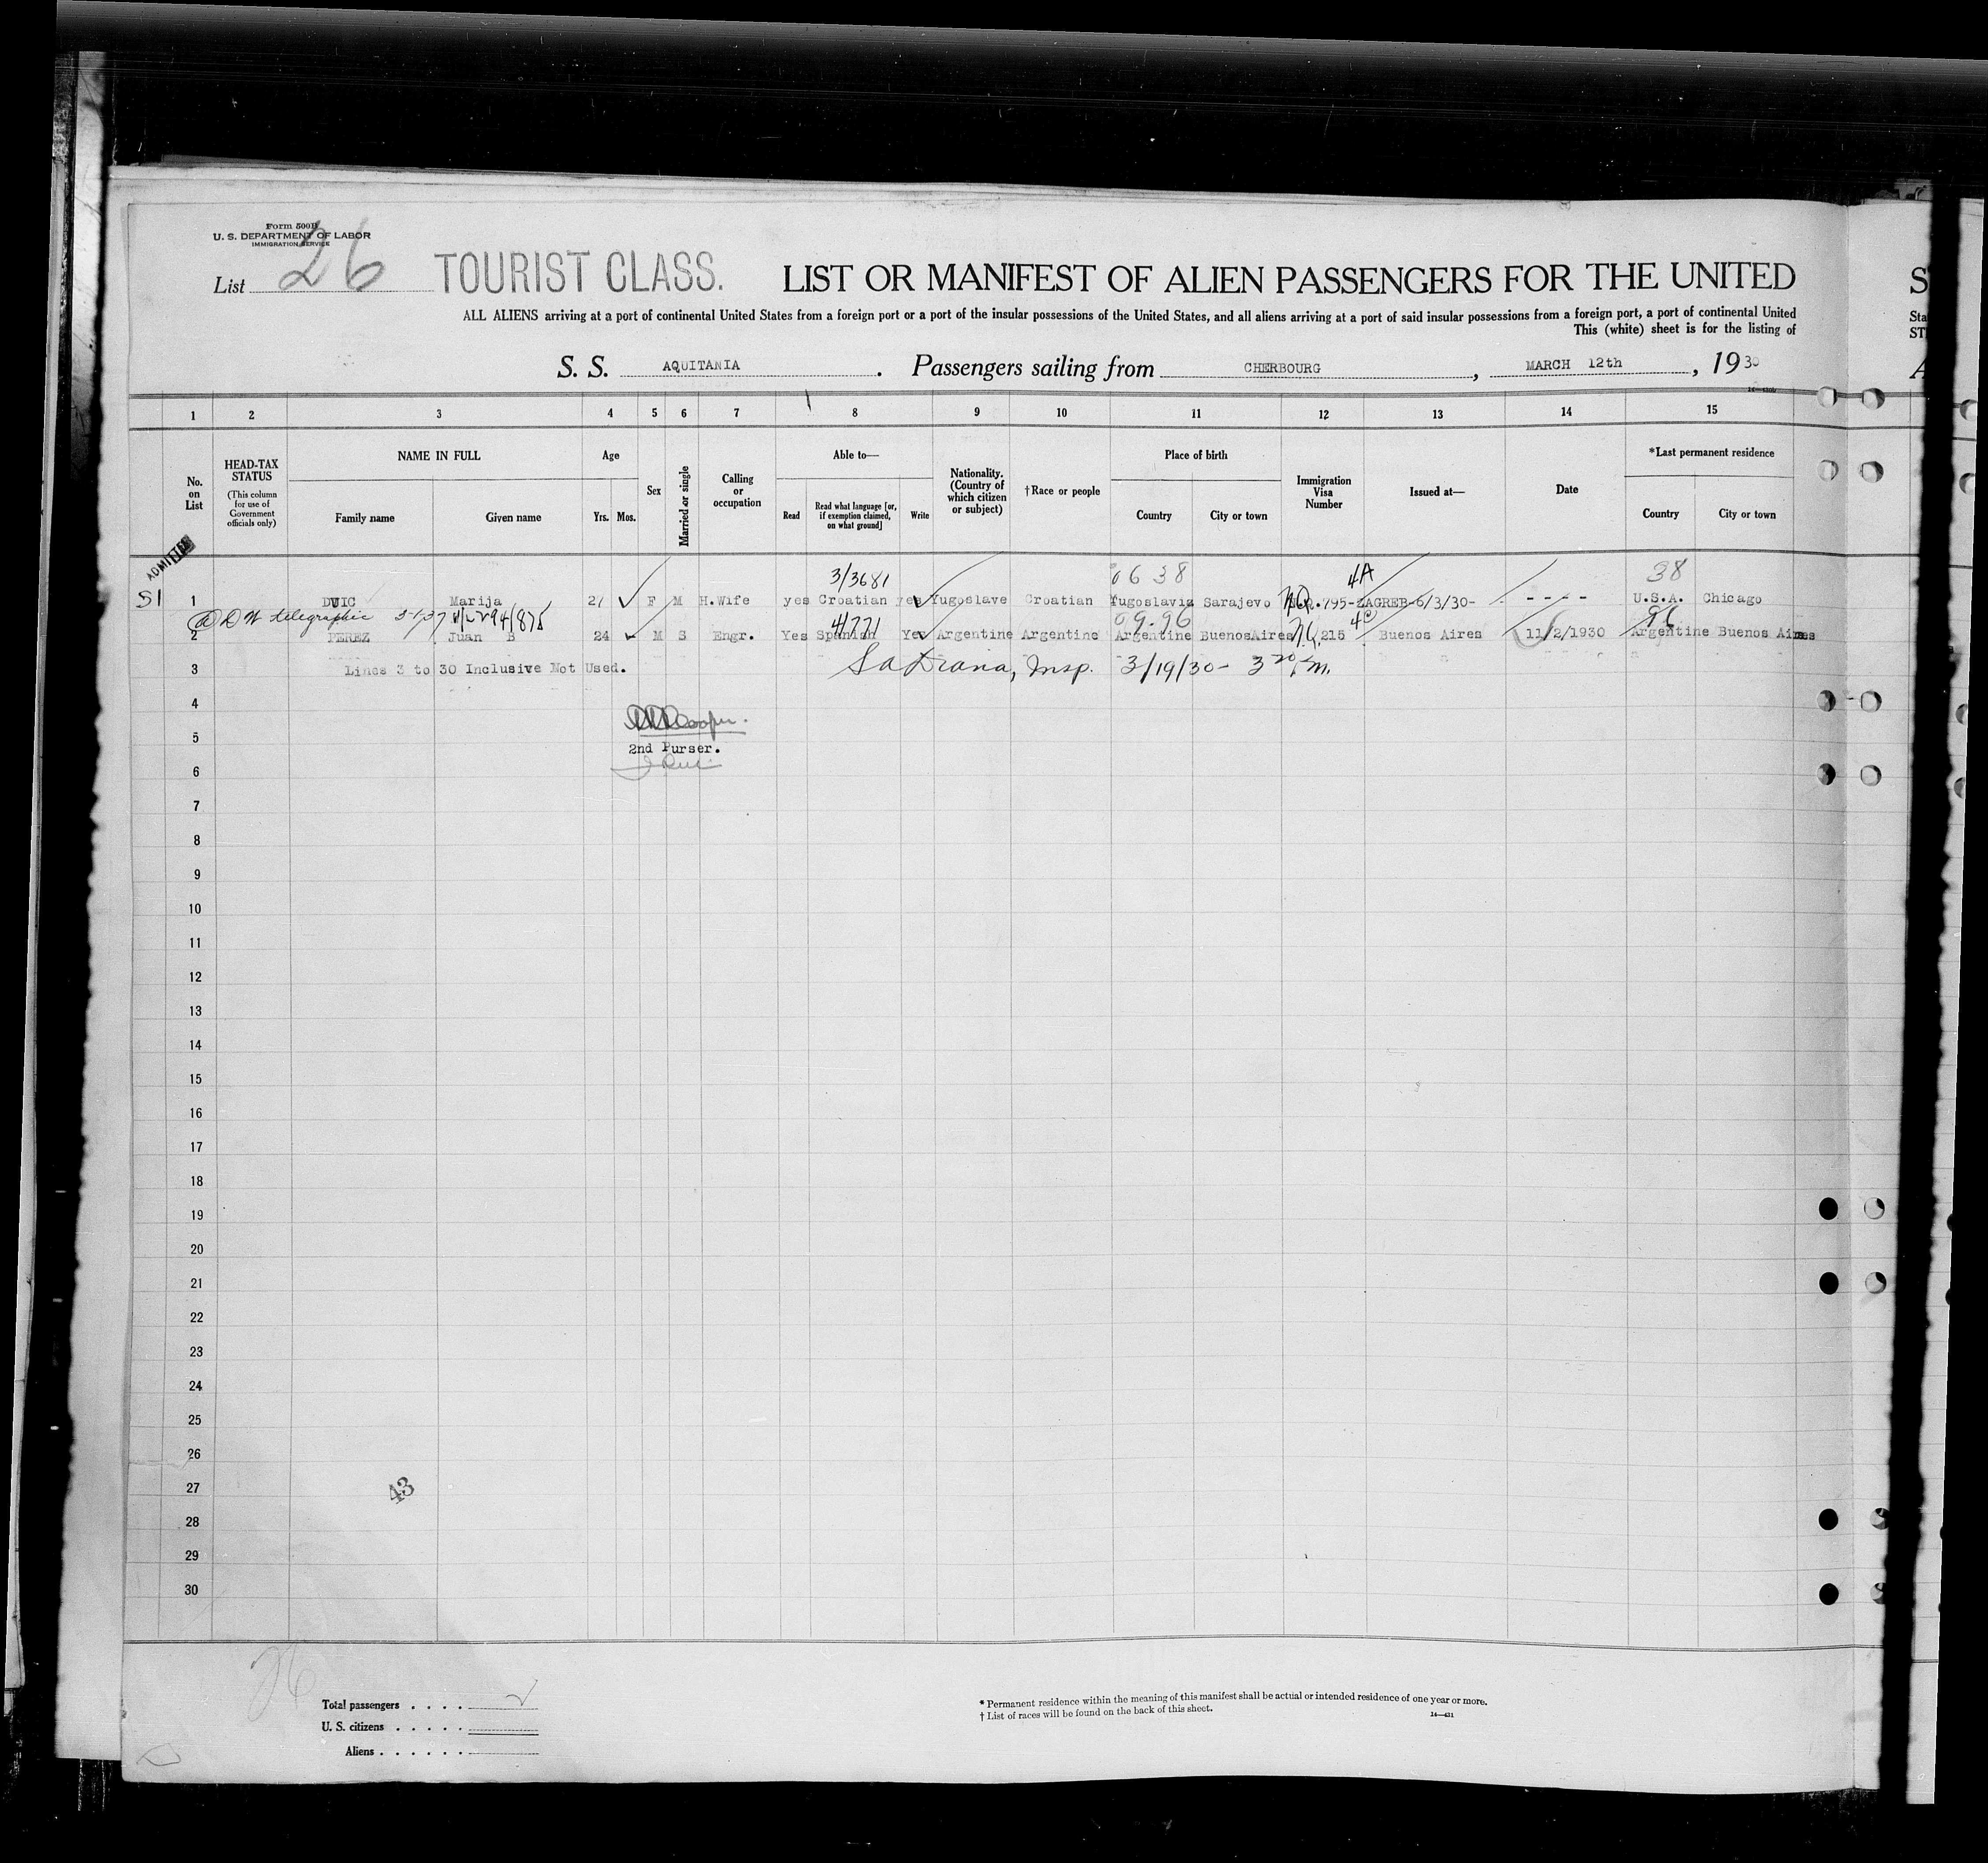 Form 500B
U. S. DEPARTMENT OF LABOR
IMMIGRATION SERVICE
List 26 TOURIST CLASS. LIST OR MANIFEST OF ALIEN PASSENGERS FOR THE UNITED
ALL ALIENS arriving at a port of continental United States from a foreign port or a port of the insular possessions of the United States, and all aliens arriving at a port of said insular possessions from a foreign port, a port of continental United
This (white) sheet is for the listing of
S. S. AQUITANIA . Passengers sailing from CHERBOURG , MARCH 12th , 1930
1 2 3 4 5 6 7 8 9 10 11 12 13 14 15
No. on List
HEAD-TAX STATUS (This column for use of Government officials only)
NAME IN FULL
Family name Given name
Age
Yrs. Mos.
Sex
Married or single
Calling or occupation
Able to—
Read Read what language [or, if exemption claimed, on what ground] Write
Nationality. (Country of which citizen or subject)
†Race or people
Place of birth
Country City or town
Immigration Visa Number
Issued at—
Date
*Last permanent residence
Country City or town
ADMITTED
3/3681 0638 4A 38
SI 1 DUIC Marija 27 F M H.Wife yes Croatian yes Yugoslave Croatian Yugoslavia Sarajevo 795-ZAGREB-6/3/30- - - - - U.S.A. Chicago
telegraphic 4/771 09.96 96
2 PEREZ Juan B 24 M S Engr. Yes Spanish Yes Argentine Argentine Argentine BuenosAires 215 Buenos Aires 11/2/1930 Argentine Buenos Aires
3 Lines 3 to 30 Inclusive Not Used. Insp. 3/19/30-
4
5
2nd Purser.
6
7
8
9
10
11
12
13
14
15
16
17
18
19
20
21
22
23
24
25
26
27
43
28
29
30
26
Total passengers . . . .
U. S. citizens . . . . .
Aliens . . . . . .
* Permanent residence within the meaning of this manifest shall be actual or intended residence of one year or more.
† List of races will be found on the back of this sheet.
14—431